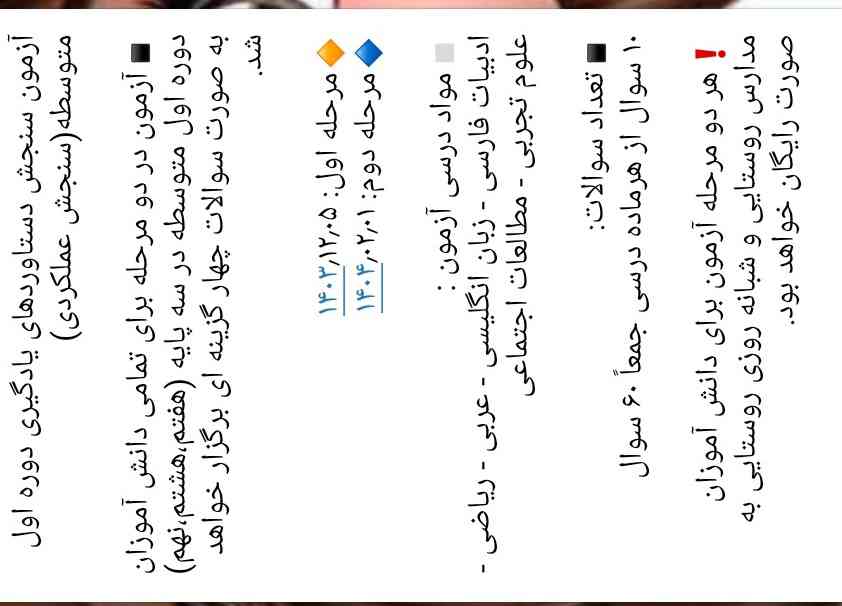 آزمون سنجش دستاوردهای یادگیری دوره اول
متوسطه(سنجش عملکردی)
◾آزمون در دو مرحله برای تمامی دانش آموزان
دوره اول متوسطه در سه پایه (هفتم،هشتم،نهم)
به صورت سوالات چهار گزینه ای برگزار خواهد
شد.
🔶مرحله اول: ۱۴۰۳٫۱۲٫۰۵
🔷مرحله دوم: ۱۴۰۴٫۰۲٫۰۱
◽مواد درسی آزمون :
ادبیات فارسی - زبان انگلیسی - عربی - ریاضی -
علوم تجربی - مطالعات اجتماعی
◾تعداد سوالات:
۱۰ سوال از هرماده درسی جمعاً ۶۰ سوال
❗هر دو مرحله آزمون برای دانش آموزان
مدارس روستایی و شبانه روزی روستایی به
صورت رایگان خواهد بود.